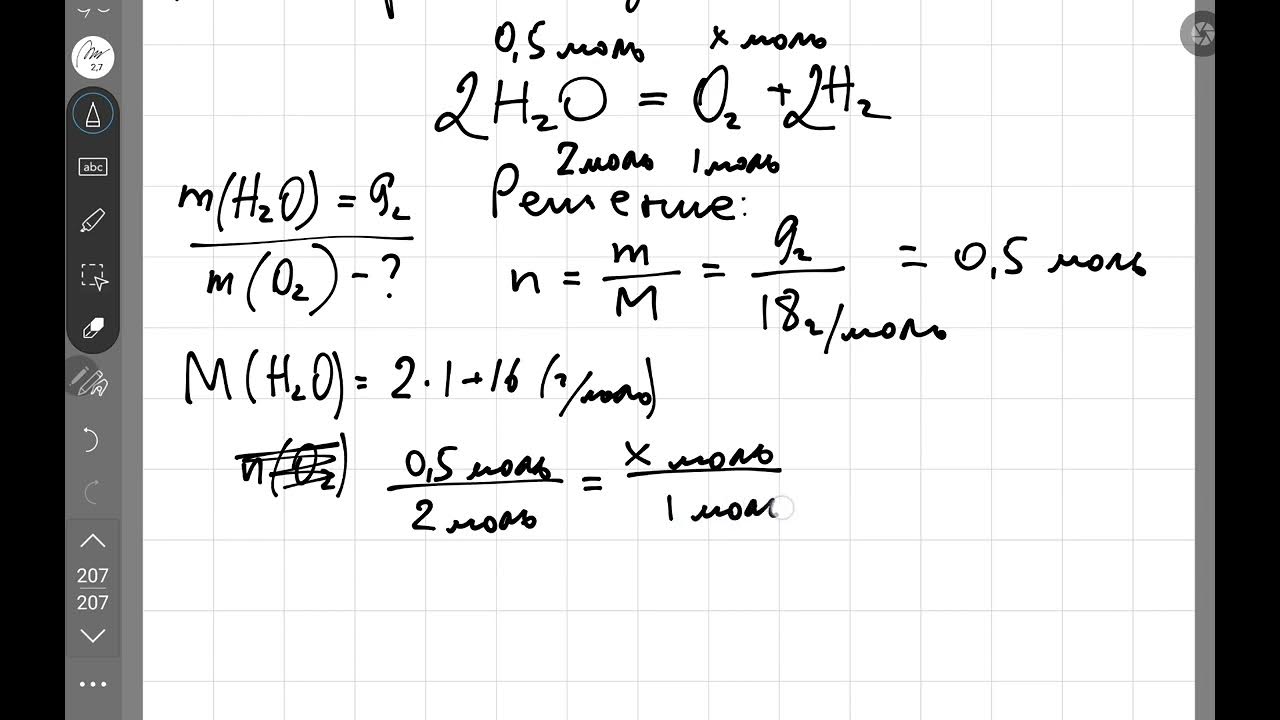 0,5 моль x моль
2H₂O = O₂ + 2H₂
2 моль 1 моль
m(H₂O) = 9г
m(O₂) - ?
Решение:
n = m/M = 9г/18г/моль = 0,5 моль
M(H₂O) = 2·1+16 (г/моль)
n(O₂) 0,5 моль/2 моль = x моль/1 моль
2,7
abc
207
207